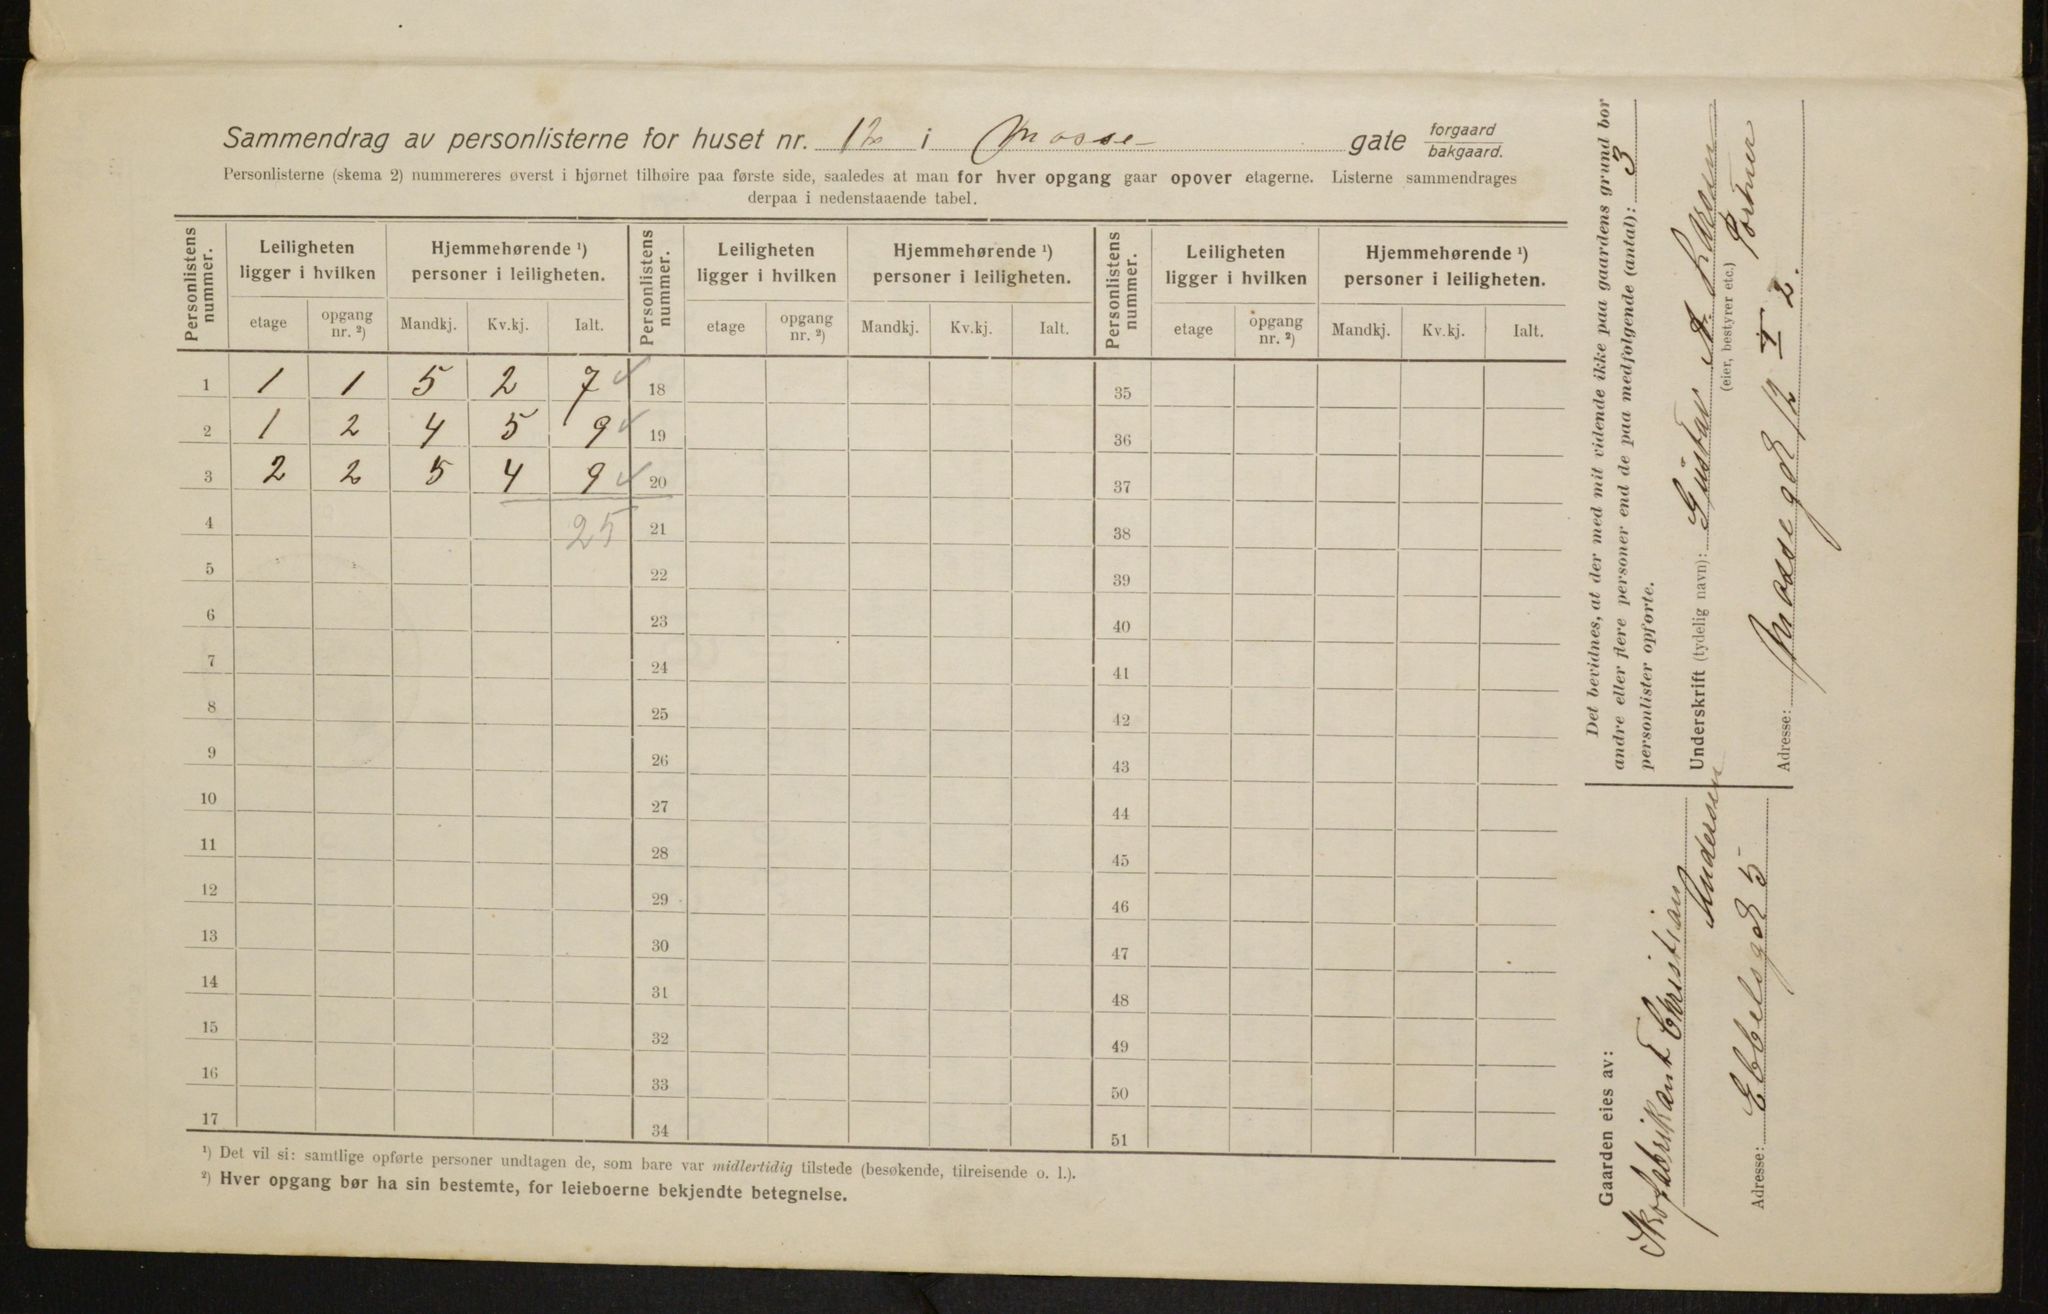 Sammendrag av personlisterne for huset nr. 12 i Mosse gate forgaard
bakgaard.
Personlisterne (skema 2) nummereres øverst i hjørnet tilhøire paa første side, saaledes at man for hver opgang gaar opover etagerne. Listerne sammendrages
derpaa i nedenstaaende tabel.
Personlistens nummer. Leiligheten ligger i hvilken Hjemmehørende ¹) personer i leiligheten. Personlistens nummer. Leiligheten ligger i hvilken Hjemmehørende ¹) personer i leiligheten. Personlistens nummer. Leiligheten ligger i hvilken Hjemmehørende ¹) personer i leiligheten.
etage opgang nr. ²) Mandkj. Kv.kj. Ialt. etage opgang nr. ²) Mandkj. Kv.kj. Ialt. etage opgang nr. ²) Mandkj. Kv.kj. Ialt.
1 1 1 5 2 7 18 35
2 1 2 4 5 9 19 36
3 2 2 5 4 9 20 37
4 25 21 38
5 22 39
6 23 40
7 24 41
8 25 42
9 26 43
10 27 44
11 28 45
12 29 46
13 30 47
14 31 48
15 32 49
16 33 50
17 34 51
¹) Det vil si: samtlige opførte personer undtagen de, som bare var midlertidig tilstede (besøkende, tilreisende o. l.).
²) Hver opgang bør ha sin bestemte, for leieboerne bekjendte betegnelse.
Det bevidnes, at der med mit vidende ikke paa gaardens grund bor
andre eller flere personer end de paa medfølgende (antal): 3
personlister opførte.
Underskrift (tydelig navn): Gustav A. Larsen
(eier, bestyrer etc.) Portner
Adresse: Mossegd 12 I 2.
Gaarden eies av:
Skofabrikant Christian
Andersen
Adresse: Ebbelsgd 5